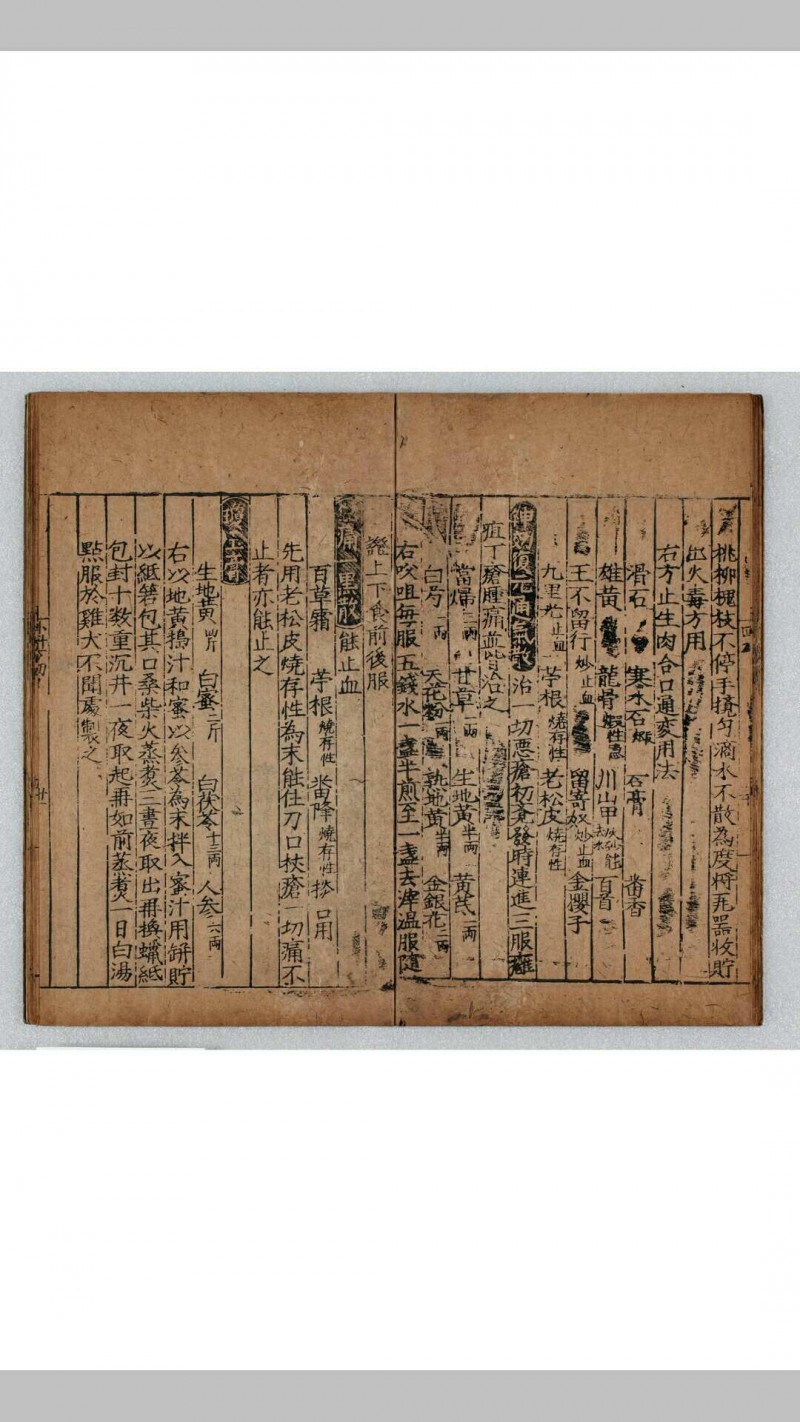 桃柳槐枝不停手攪勻滴水不散為度將瓦器收貯
出火毒方用
右方止生肉合口通変用法
滑石 寒水石煅 石膏 畨香
雄黃 龍骨煅性急 川山甲 百音
王不留行炒止血 留寄奴炒止血 金櫻子
九里光止血 苧根燒存性 老松皮燒存性
治一切悪瘡初發時連進三服癰
疽丁瘡腫痛並皆治之
當歸二兩 甘草一兩 生地黃半兩 黃芪一兩
白芍一兩 天花粉一兩 熟地黃半兩 金銀花二兩
右㕮咀每服五錢水一盞半煎至一盞去滓温服隨
瘡上下食前後服
能止血
百草霜 苧根燒存性 畨降燒存性 摻口用
先用老松皮燒存性為末能住刀口杖瘡一切痛不
止者亦能止之
生地黃 白蜜二斤 白茯苓十三兩 人参六兩
右以地黃搗汁和蜜以参苓為末拌入蜜汁用缾貯
以紙箬包其口桑柴火蒸煮三晝夜取出再換蠟紙
包封十数重沉井一夜取起再如前蒸煮一日白湯
點服於雞犬不聞處製之